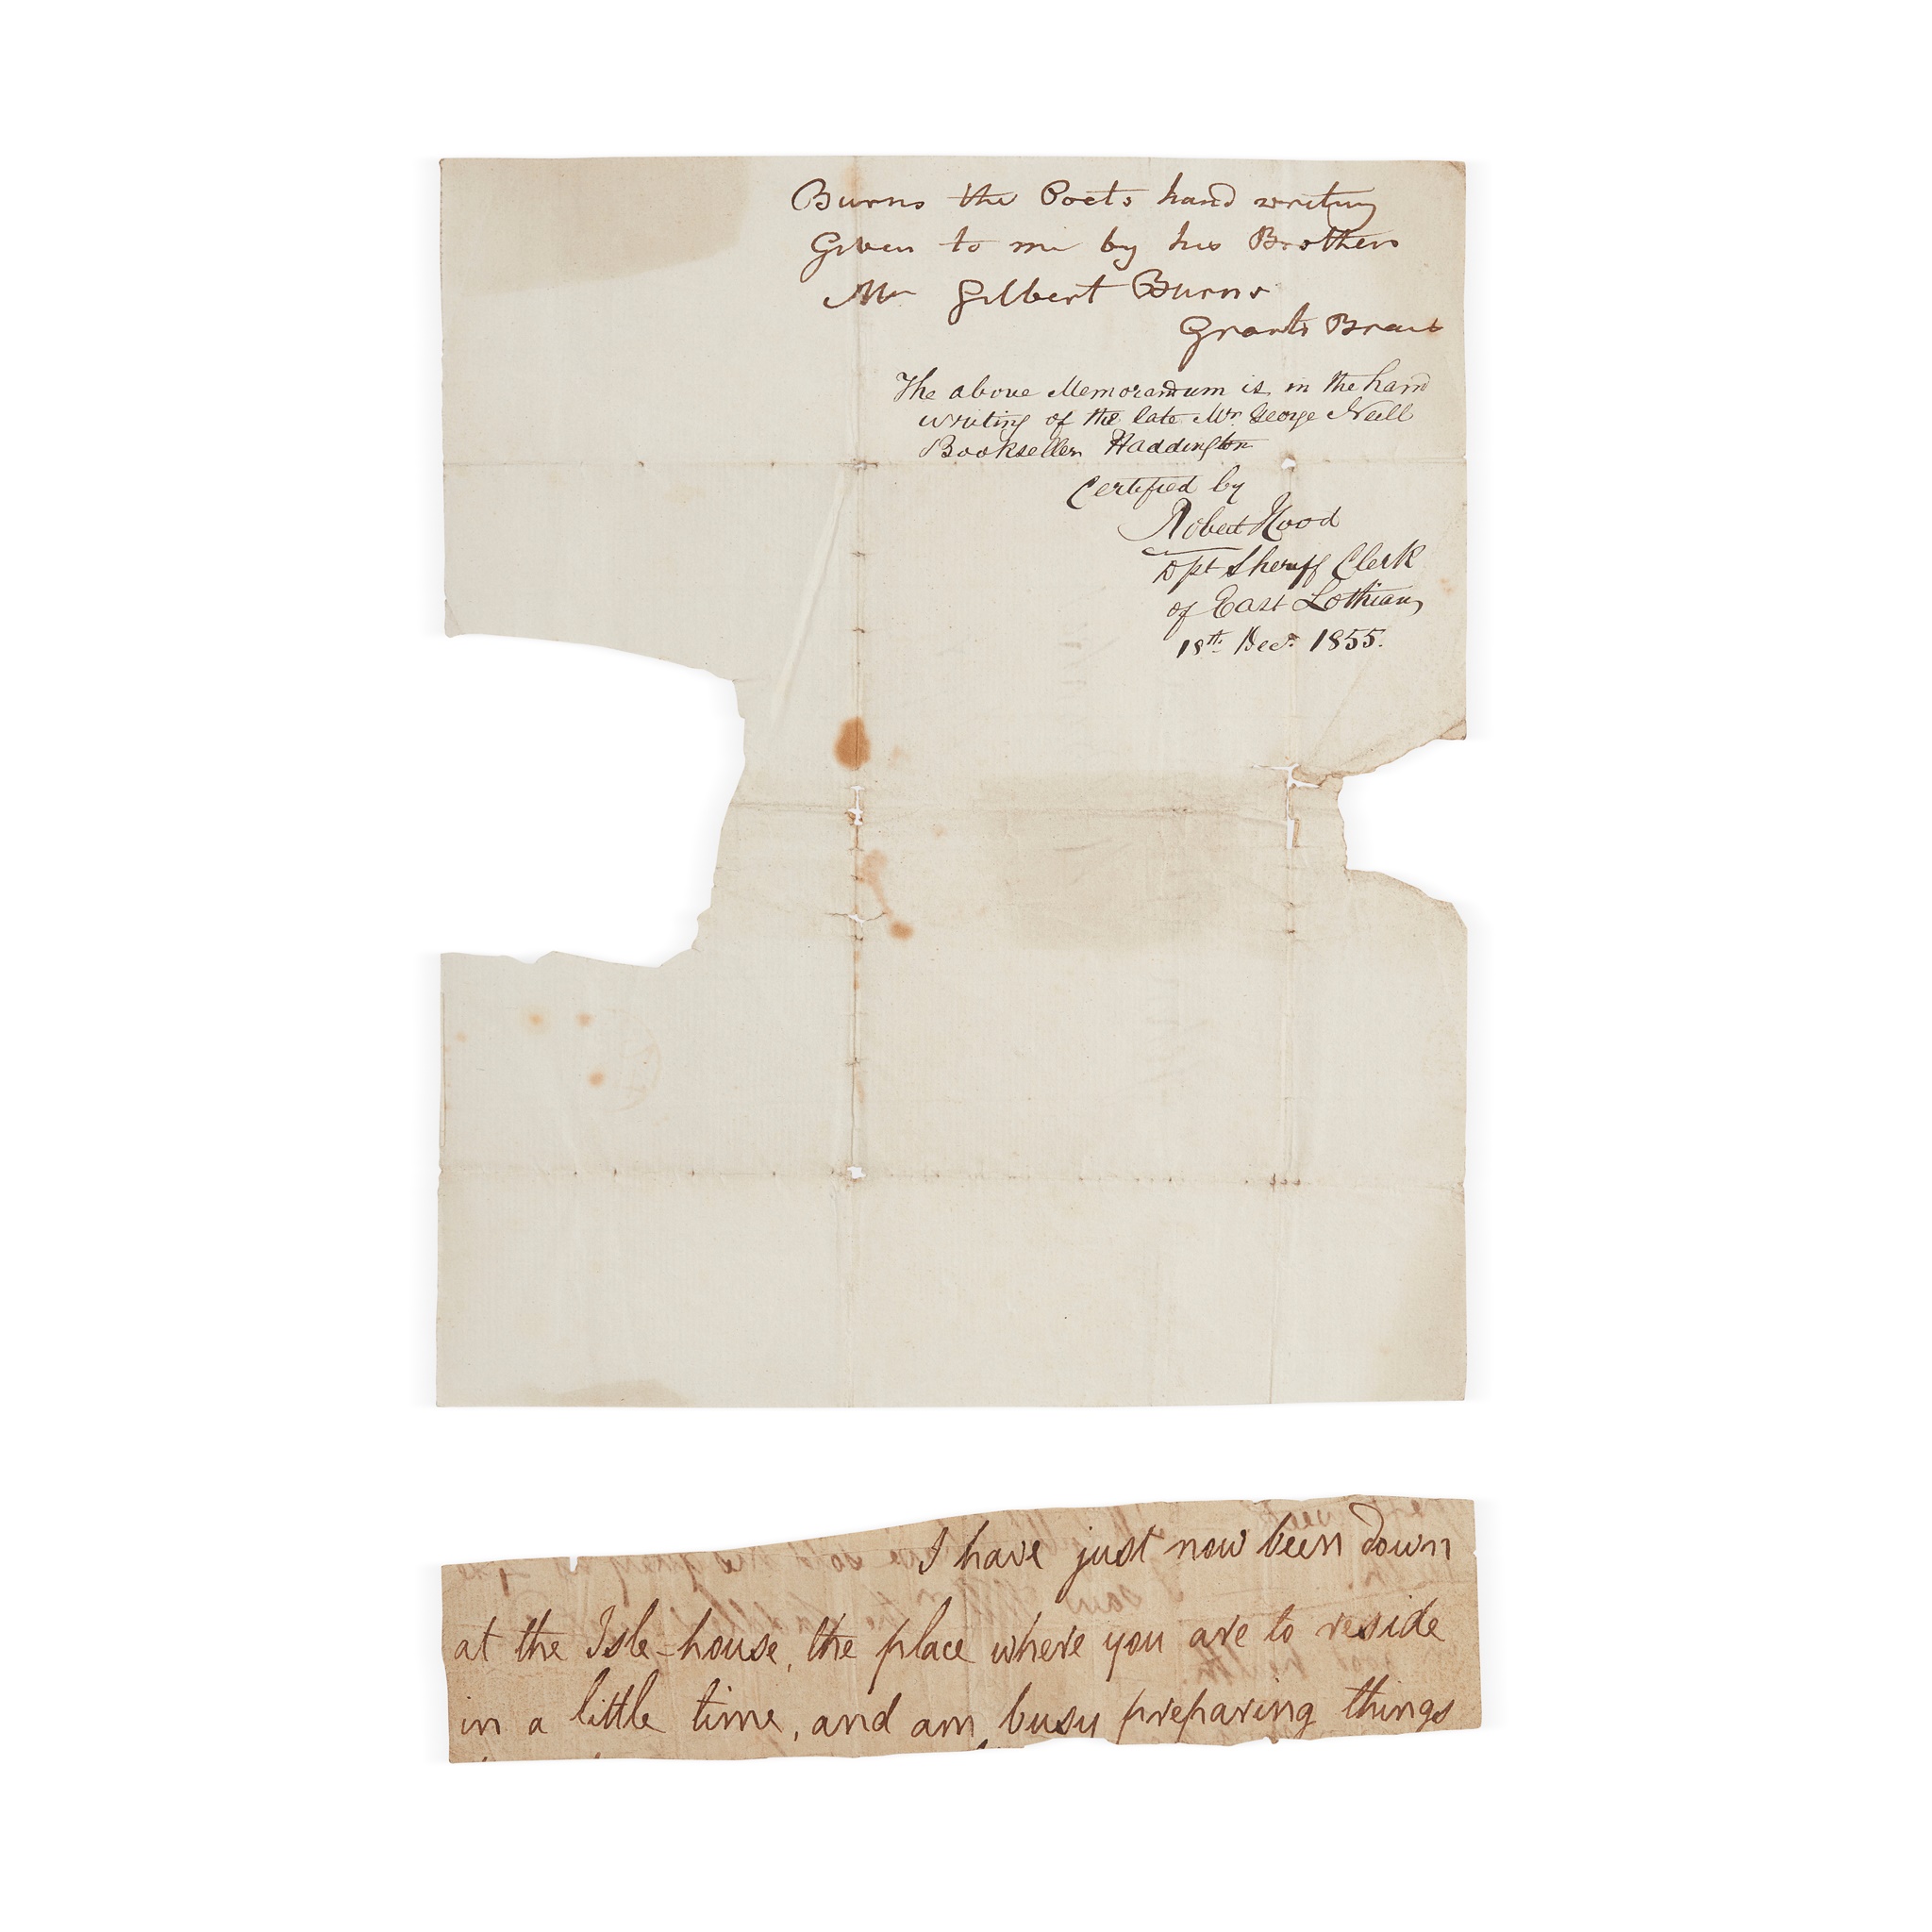 Burns the Poets hand writing
Given to me by his Brother
Mr Gilbert Burns
Grants Braes
The above Memorandum is in the hand
writing of the late Mr George Neill
Bookseller Haddington
Certified by
Robert Hood
Dpt Sheriff Clerk
of East Lothian
18th Decr 1855.
I have just now been down
at the Isle-house, the place where you are to reside
in a little time, and am busy preparing things